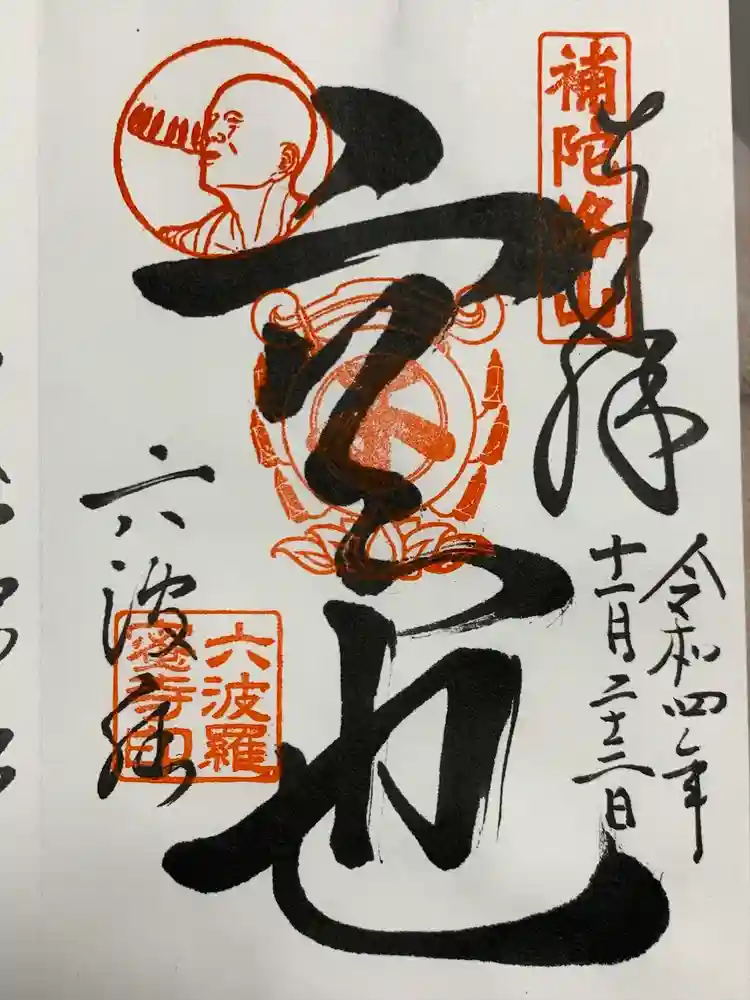 奉拝
補陀洛山
令和四年
十一月二十三日
空也
六波羅
六波羅
蜜寺印